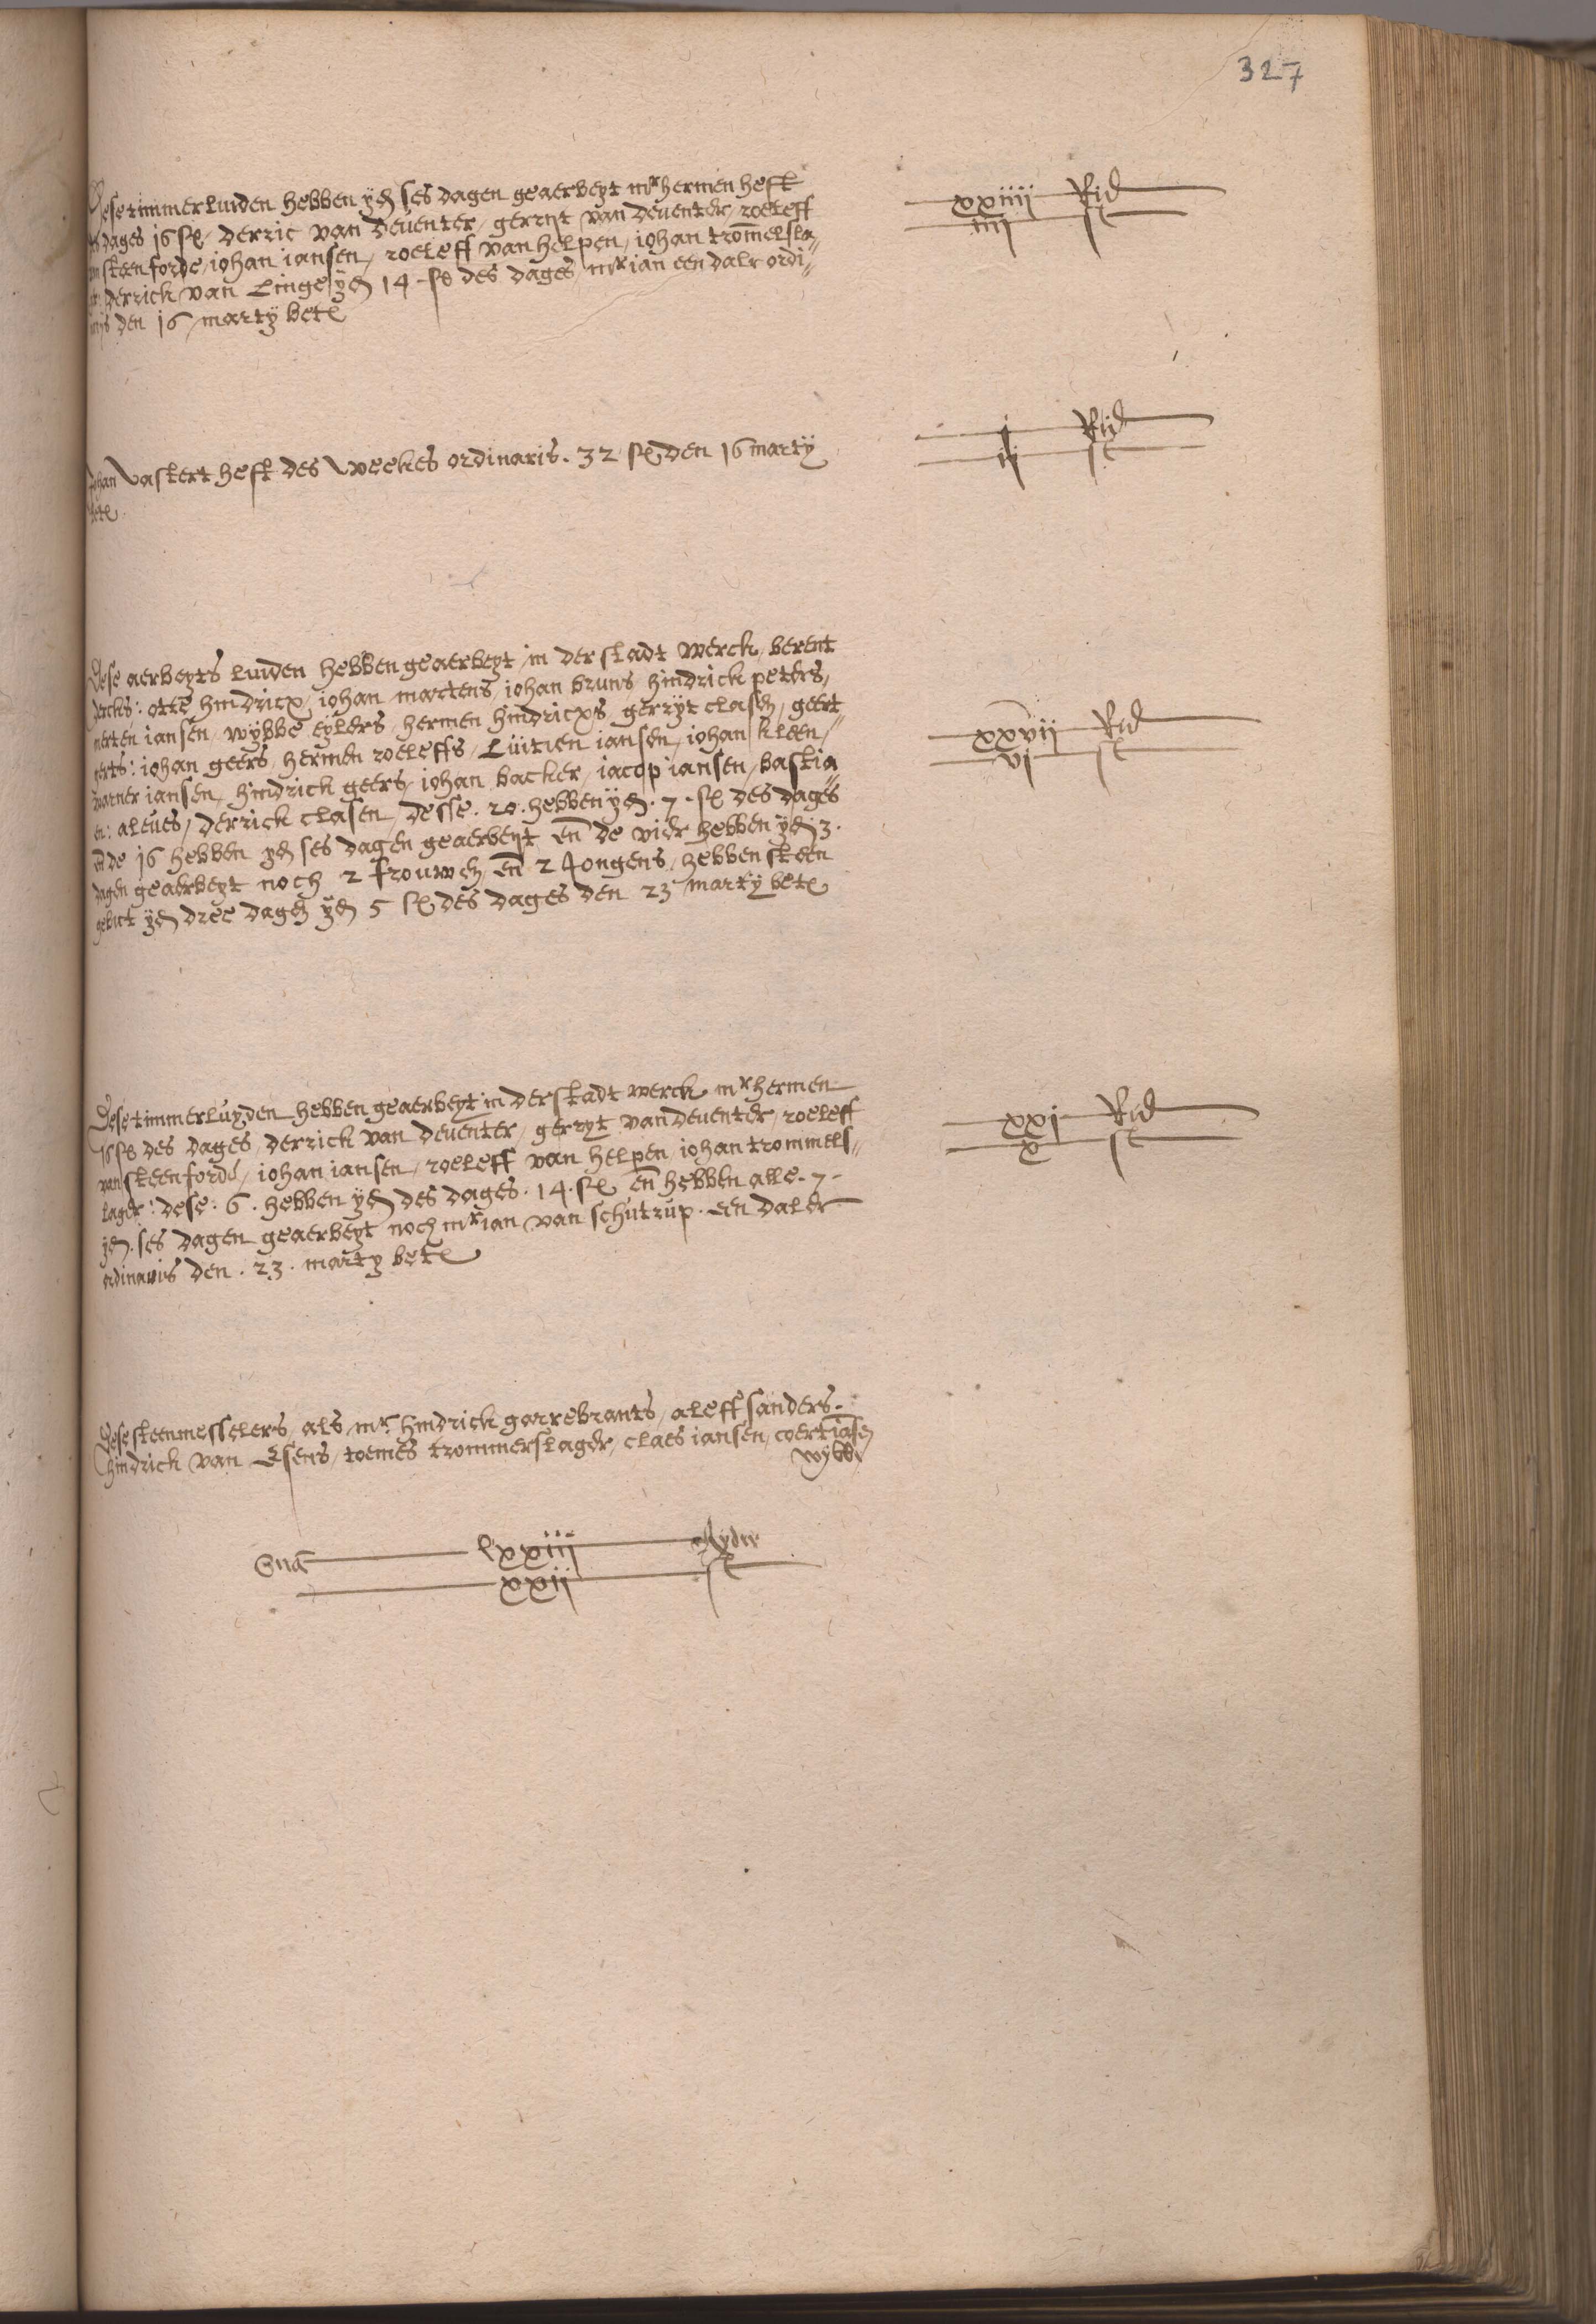 327
Dese timmerluiden hebben yd ses dagen geaerbeyt mr hermen heft
des dages 16 st derric van deventer, gerryt van deventer, roeleff
van steenforde, iohan iansen, roeleff van helpen, iohan tromelsla„
ger, derrick van Linge yd 14 st des dages mr ian een dalr ordi„
naris den 16 marty bet
xxiiii Rid
iiij st
Johan vastert heft des weekes ordinaris. 32 st den 16 marty
bet
i Rid
ij st
Dese aerbeyts luiden hebben geaerbeyt in der stadt werck, berent
dercks: otte hindricx, iohan martens, iohan bruns, hindrick peters,
merten iansen, wybbe eylers, hermen hindricxs, gerryt clasen, geert
gerts: iohan geers, hermen roeleffs, Luitien iansen, iohan kleen„
warner iansen, hindrick geers, iohan backer, iacop iansen, bastia„
en: aleves, derrick clasen, desse. 20. hebben yd. 7. st des dages
en de 16 hebben yd ses dagen geaerbeyt en de vier hebben yd 3.
dagen geaerbeyt noch 2 frouwen en 2 Jongens, hebben steen
gebict yd dree dagen yd 5 st des dages den 23 marty bet
xxvii Rid
vi st
Dese timmerluyden hebben geaerbeyt in der stadt werck mr hermen
16 st des dages, derrick van deventer, gerryt van deventer, roeleff
van steenforde, iohan iansen, roeleff van helpen, iohan trommels„
lager: dese. 6. hebben yd des dages. 14. st en hebben alle. 7.
yd. ses dagen geaerbeyt noch mr ian van schutrup. een daler
ordinaris den. 23. marty bet
xxi Rid
x st
Dese steenmesselers, als mr hindrick garrebrants, aleff sanders.
hindrick van Esens, toemes trommerslager, claes iansen, coert iasen
wybbe
Sma lxxiii Ryder
xxij st